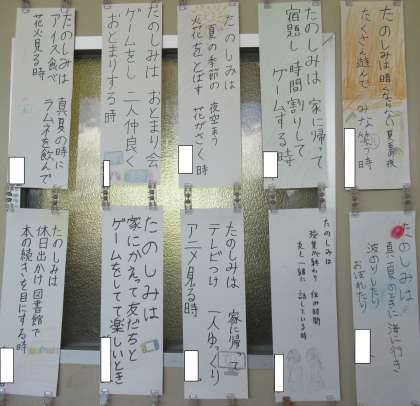 たのしみは 明るくない 夏の夜
たくさん遊んで みな笑う時
たのしみは 家に帰って
宿題し 時間割りして
ゲームする時
たのしみは
夏の季節の 夜空まう
火花をとばす 花がさく時
たのしみは おとまり会
ゲームをし 二人仲良く
おとまりする時
たのしみは 真夏の時に
アイス食べ ラムネを飲んで
花火見る時
たのしみは
真夏の真に 海に行き
波のりしたり
おぼれたり
たのしみは
授業が終わり 休み時間
友と一緒に 話している時
たのしみは 家に帰って
テレビつけ 一人ゆっくり
アニメ見る時
たのしみは
家にかえって友だちと
ゲームをしてて楽しいとき
たのしみは
休日出かけ図書館で
本の続きを目にする時